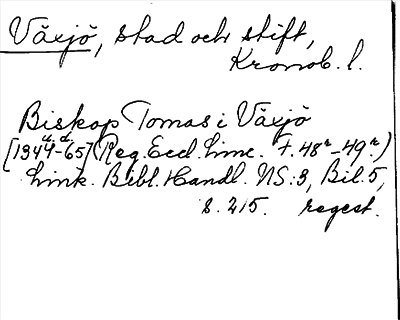 Växjö, stad och stift,
Kronob. l.
Biskop Tomas i Växjö
[1344-65] (Reg. Eccl. Linc. F. 48r-49r.)
Link. Bibl. Handl. NS:3, Bil. 5,
s. 215. regest.